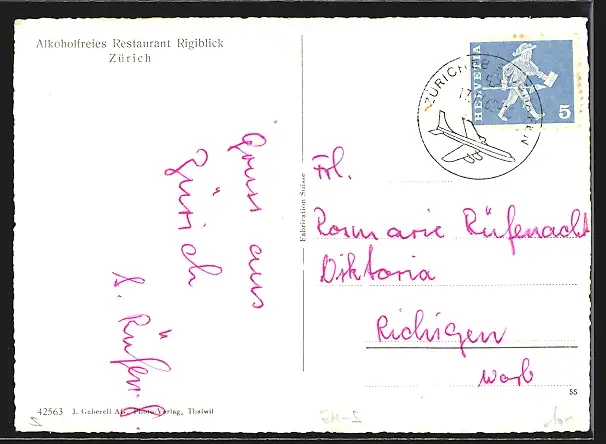 Alkoholfreies Restaurant Rigiblick
Zürich
Gruss aus
Zürich
Fabrication Suisse
HELVETIA
5
ZÜRICH
Frl.
Rosmarie Rüfenacht
Diktoria
Richigen
Worb
55
42563 J. Gaberell Verlag, Thalwil